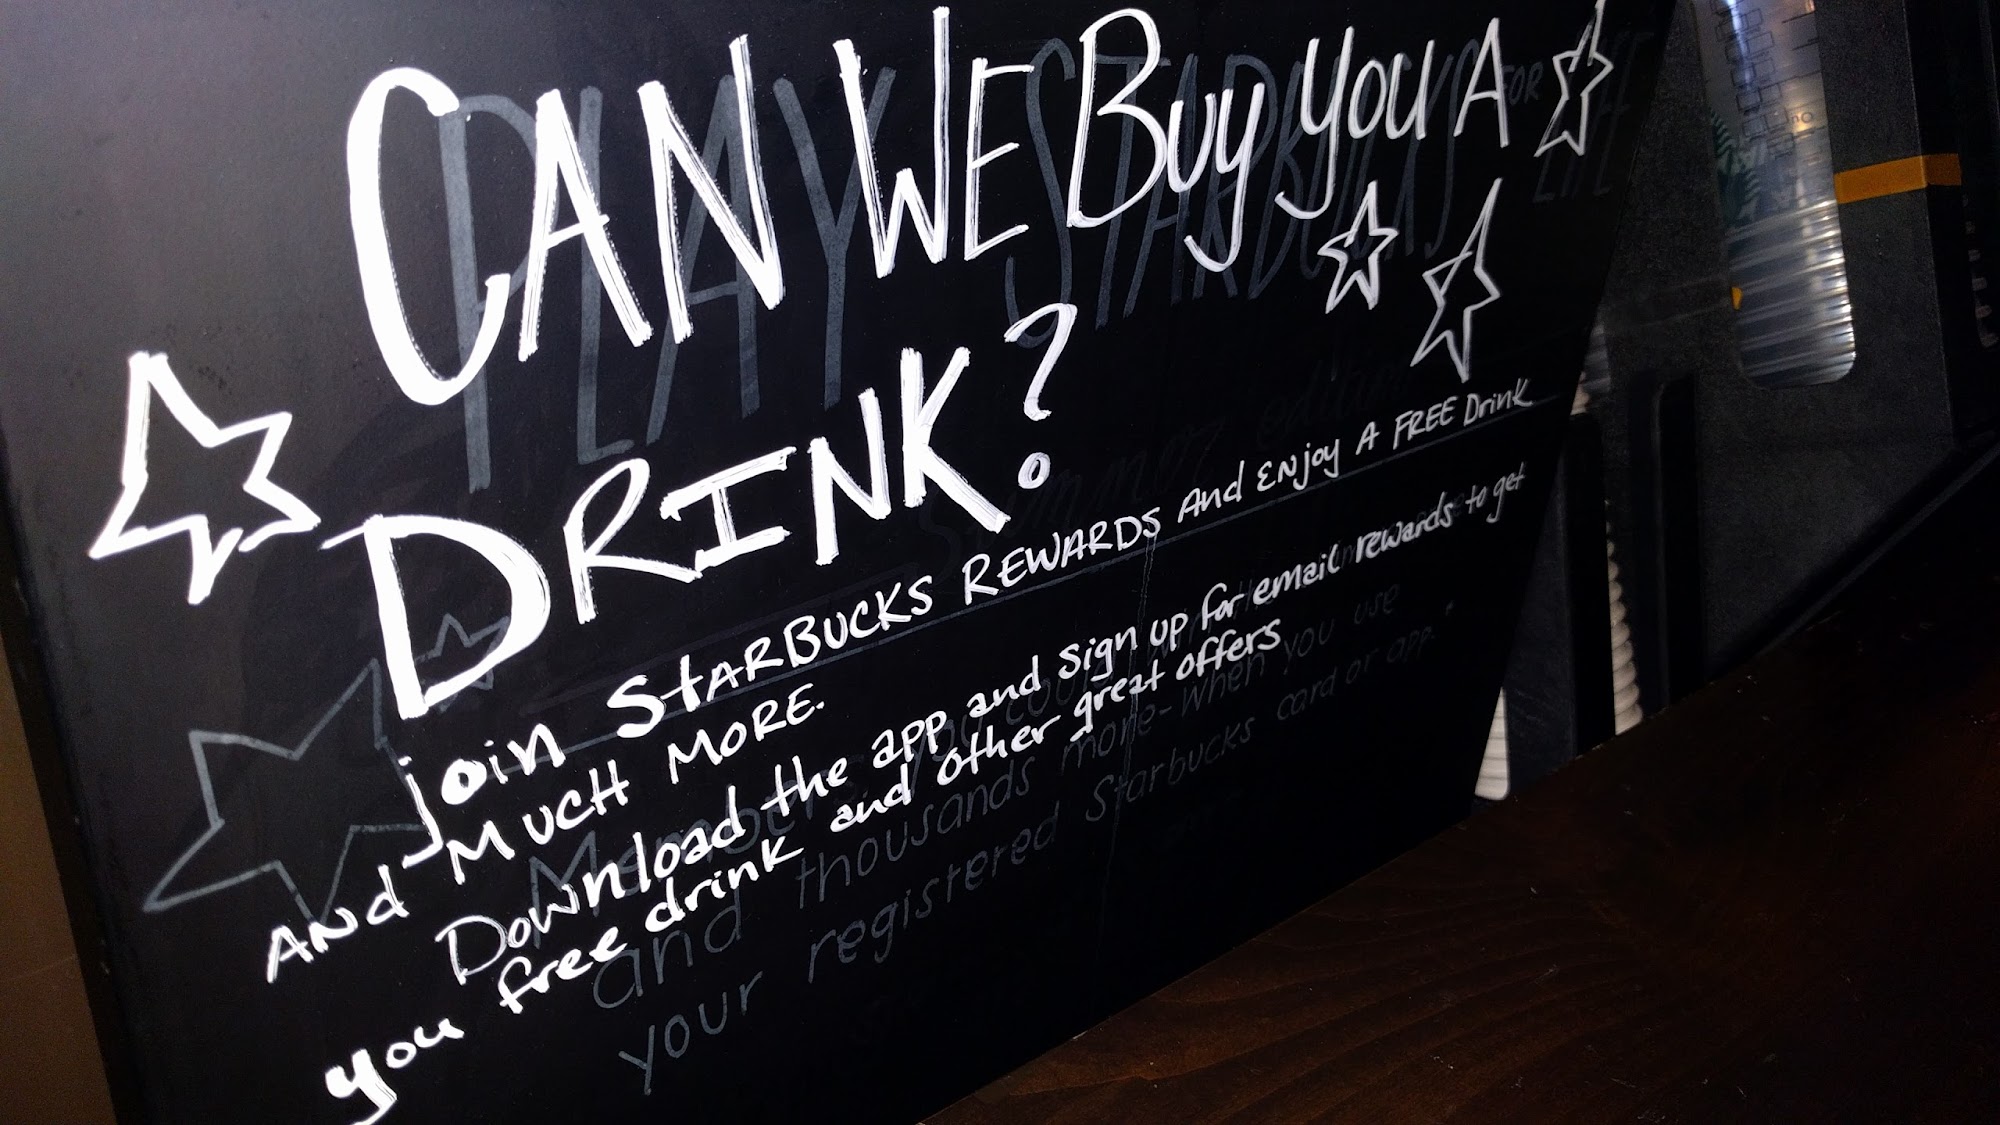 CAN WE Buy you A
DRINK?
join StARBUCKS REWARDS And ENjoy A FREE Drink
ANd MUCH MORE.
Download the app and sign up for email rewards to get
you free drink and other great offers
PLAY STARBUCKS FOR LIFE
Summer edition
Members, you could
and thousands more-when you use
your registered Starbucks card or app.